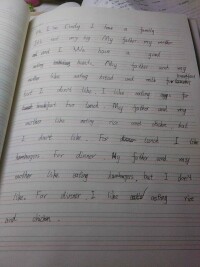 Hi, I'm Cindy. I have a family
It's not very big. My father my mother
and I. We have a good
eating habit. My father and my
mother like eating bread and milk for breakfast
but I don't like I like eating egg. for
lunch. My father and my
mother like eating rice and chicken. but
I don't like. For dinner I like
hamburgers for dinner My father and my
mother like eating hamburgers, but I don't
like. For dinner. I like eating rice
and chicken.